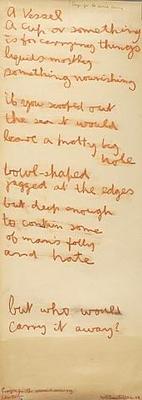 A Vessel
A cup or something
is for carrying things
liquids mostly
something nourishing
if you scooped out
the sea it would
leave a motty big
hole
bowl-shaped
jagged at the edges
but deep enough
to contain some
of man's folly
and hate
but who would
carry it away?